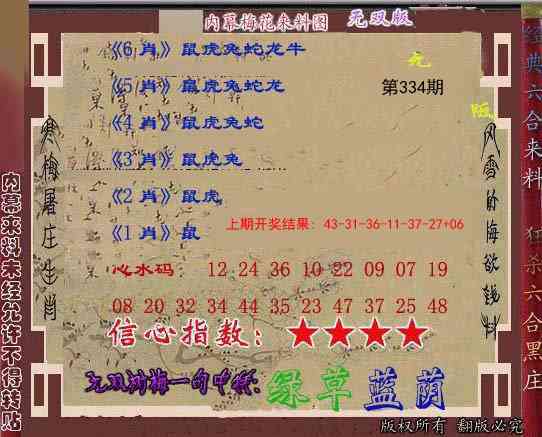 内幕梅花来料图 无双版
《6 肖》鼠虎兔蛇龙牛
无
《5 肖》鼠虎兔蛇龙
第334期
版
《4 肖》鼠虎兔蛇
《3 肖》鼠虎兔
《2 肖》鼠虎
上期开奖结果: 43-31-36-11-37-27+06
《1 肖》鼠
心水码: 12 24 36 10 22 09 07 19
08 20 32 34 44 35 23 47 37 25 48
信心指数: ★★★★
绿草蓝荫
版权所有 翻版必究
寒梅屠庄生肖
内幕来料未经允许不得转贴
经典六合来料 狂杀六合黑庄